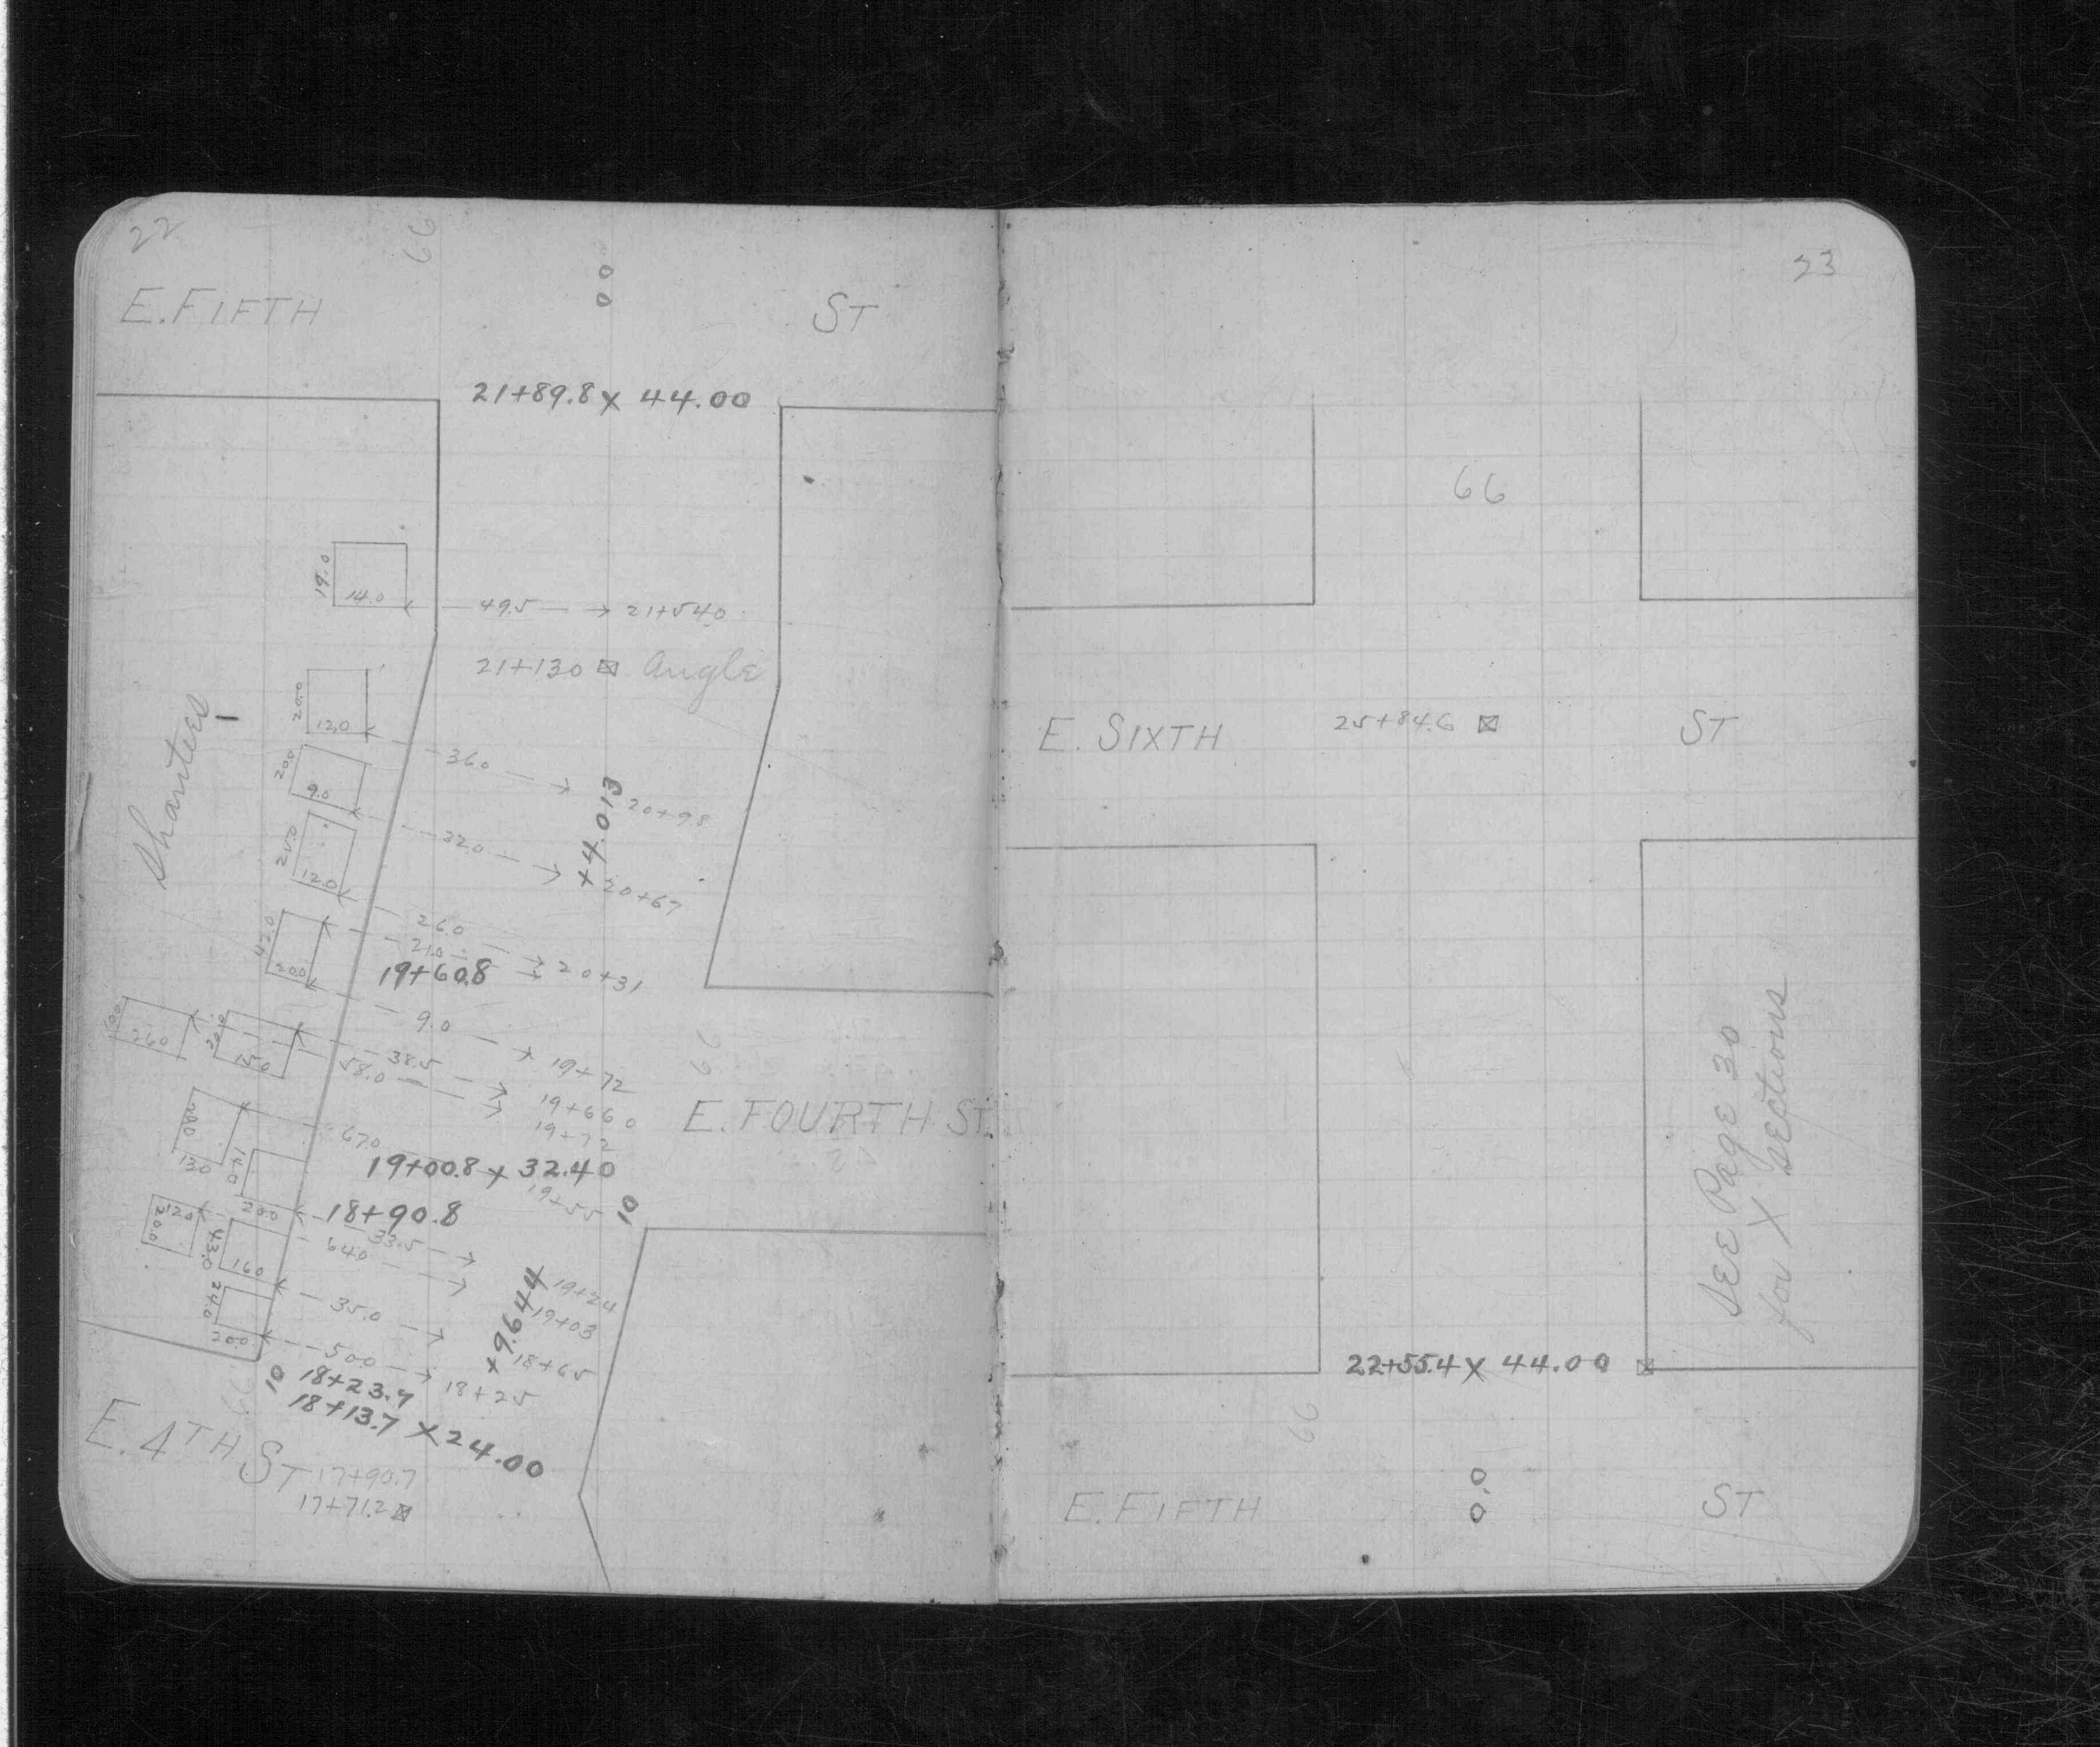 22
66
0.0
E. FIFTH ST
21+89.8 x 44.00
19.0
14.0
49.5 21+54.0
21+13.0 Angle
20.0
12.0
36.0
20+98
20.0
9.0
32.0
20+67
+4.013
Shanties
25.0
12.0
26.0
21.0
20+31
42.0
20.0
19+60.8
9.0
19+72
26.0
20.0
15.0
38.5
58.0
19+66.0
66
E. FOURTH ST.
13.0
14.0
67.0
19+00.8 x 32.40
19+55
10
20.0
18+90.8
12.0
20.0
33.5
64.0
43.0
16.0
19+24
19+03
+9.644
35.0
18+65
24.0
20.0
50.0
18+25
10
18+23.7
18+13.7 x 24.00
66
E. 4TH ST
17+90.7
17+71.2
23
66
E. SIXTH 25+84.6 ST
SEE Page 30
for X sections
22+55.4 x 44.00
66
0.0
E. FIFTH ST